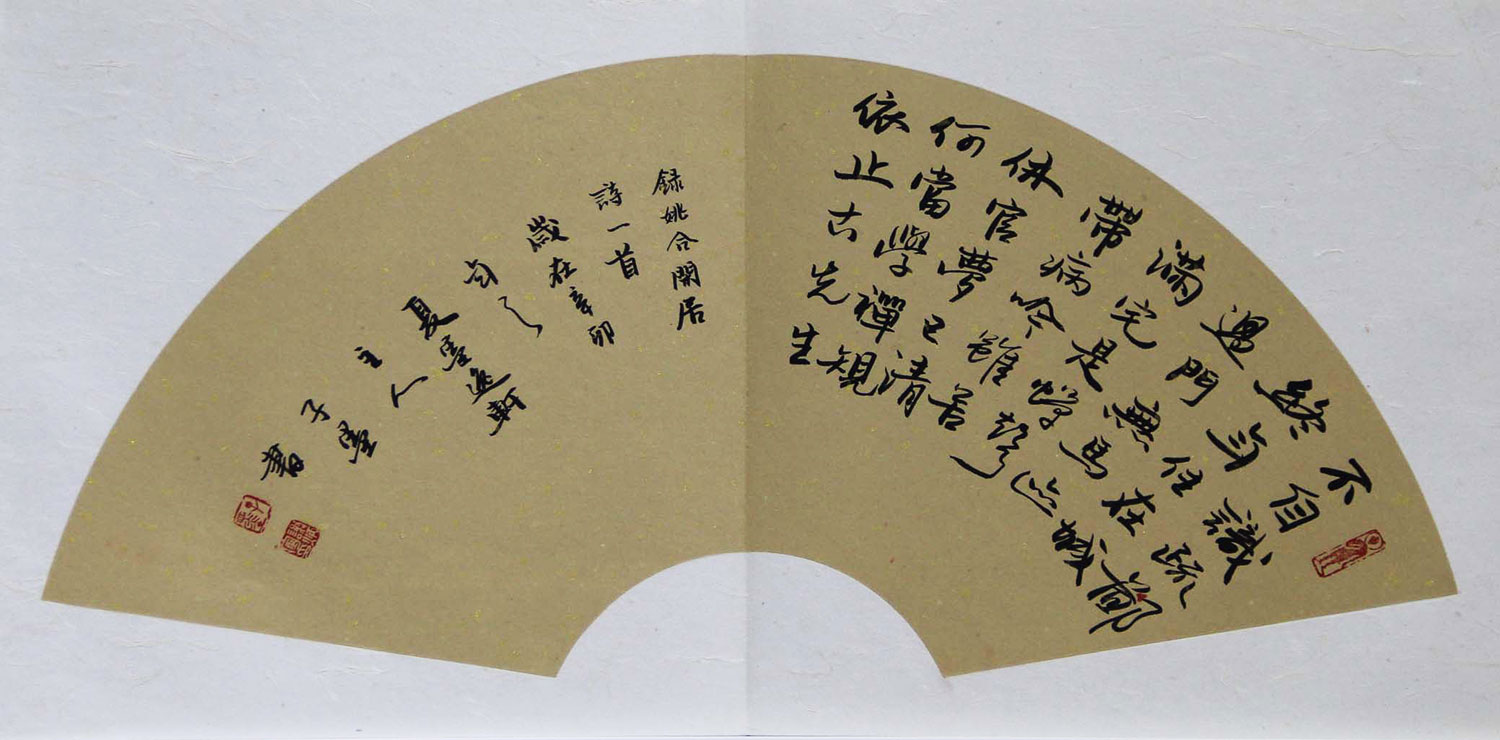 不自識疏鄙
終年住在城
過門無馬跡
滿宅是蟬聲
帶病吟雖苦
休官夢已清
何當學禪觀
依止古先生
錄姚合閑居
詩一首
歲在辛卯
夏墨逸軒
主人
子墨
書